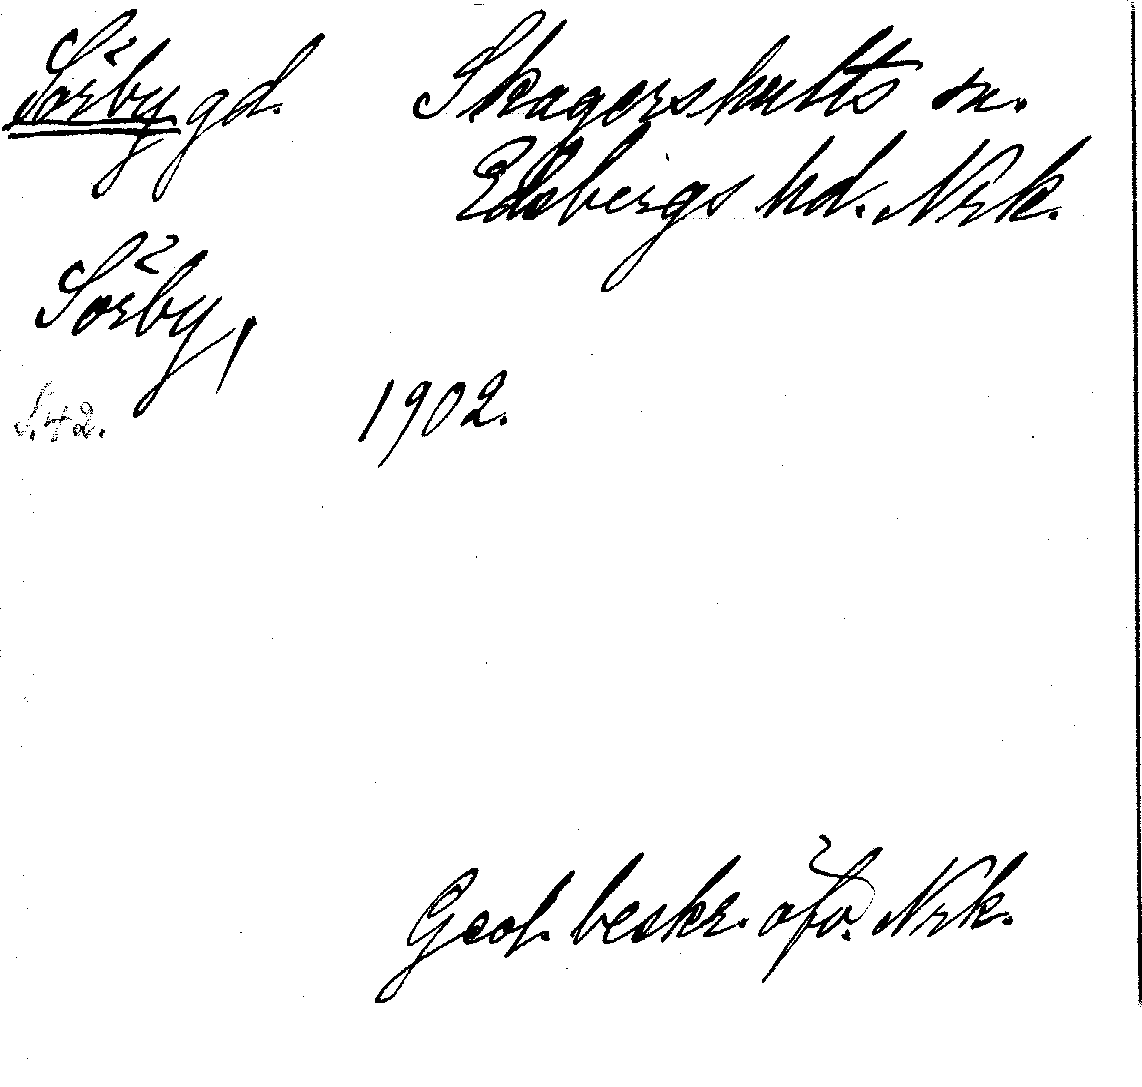 Sörby gd. Skagershults sn.
Edsbergs hd. Nrk.
Sörby,
S.42. 1902.
Geol. beskr. öfv. Nrk.